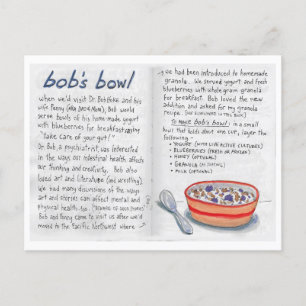 bob's bowl
When we'd visit Dr. Bob and his
wife Penny, Bob would
serve bowls of his homemade yogurt
with blueberries for breakfast saying
"Take care of your gut!"
Dr. Bob, a psychiatrist, was interested
in the ways our intestinal health affects
our thinking and creativity. Bob also
loved art and literature (and wrestling).
We had many discussions of the ways
art and stories can affect mental and
physical health too.
Bob and Penny came to visit us after we'd
moved to the Pacific Northwest where
we had been introduced to homemade
granola... We served yogurt and fresh
blueberries with whole grain granola
for breakfast. Bob loved the new
addition and asked for my granola
recipe.
To make Bob's Bowl: in a small
bowl that holds about one cup, layer the
following -
• YOGURT (WITH LIVE ACTIVE CULTURES)
• BLUEBERRIES (FRESH OR FROZEN)
• HONEY (OPTIONAL)
• GRANOLA
• MILK (OPTIONAL)